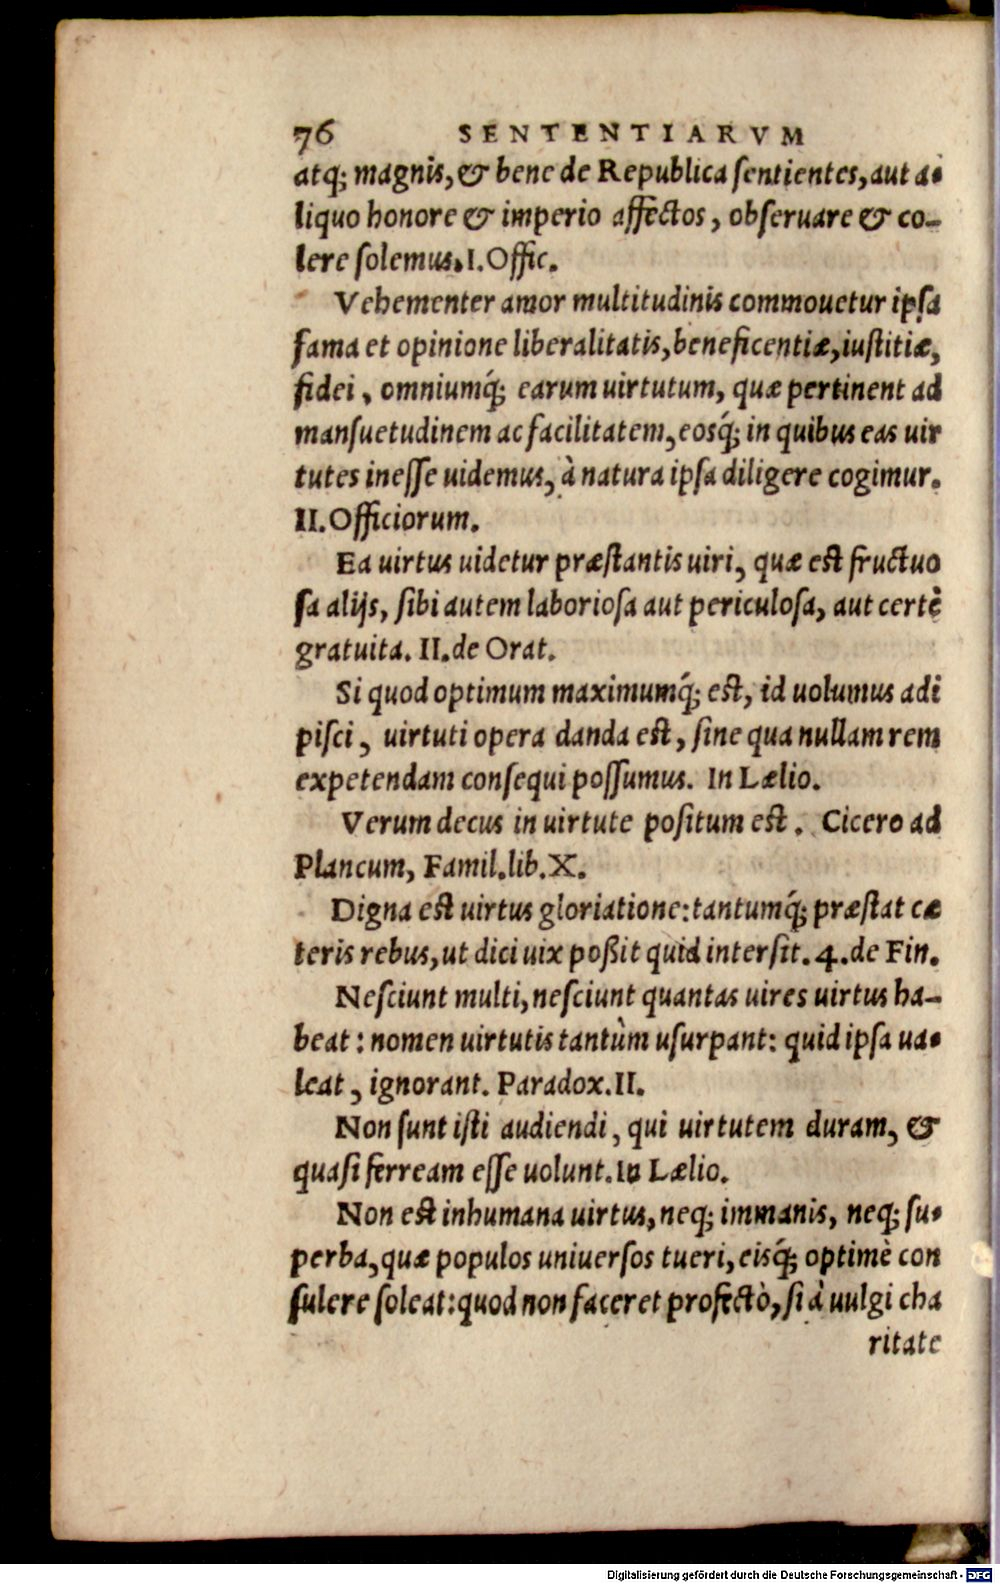 76 SENTENTIARVM
atq; magnis, & bene de Republica sentientes, aut a-
liquo honore & imperio affectos, obseruare & co-
lere solemus. I. Offic.
Vehementer amor multitudinis commouetur ipsa
fama et opinione liberalitatis, beneficentiæ, iustitiæ,
fidei, omniumq́; earum uirtutum, quæ pertinent ad
mansuetudinem ac facilitatem, eosq́; in quibus eas uir
tutes inesse uidemus, à natura ipsa diligere cogimur.
II. Officiorum.
Ea uirtus uidetur præstantis uiri, quæ est fructuo
sa alijs, sibi autem laboriosa aut periculosa, aut certè
gratuita. II. de Orat.
Si quod optimum maximumq́; est, id uolumus adi
pisci, uirtuti opera danda est, sine qua nullam rem
expetendam consequi possumus. In Lælio.
Verum decus in uirtute positum est. Cicero ad
Plancum, Famil. lib. X.
Digna est uirtus gloriatione: tantumq́; præstat cæ
teris rebus, ut dici uix poßit quid intersit. 4. de Fin.
Nesciunt multi, nesciunt quantas uires uirtus ha-
beat: nomen uirtutis tantùm usurpant: quid ipsa ua-
leat, ignorant. Paradox. II.
Non sunt isti audiendi, qui uirtutem duram, &
quasi ferream esse uolunt. In Lælio.
Non est inhumana uirtus, neq; immanis, neq; su-
perba, quæ populos uniuersos tueri, eisq́; optimè con
sulere soleat: quod non faceret profectò, si à uulgi cha
ritate
Digitalisierung gefördert durch die Deutsche Forschungsgemeinschaft - DFG